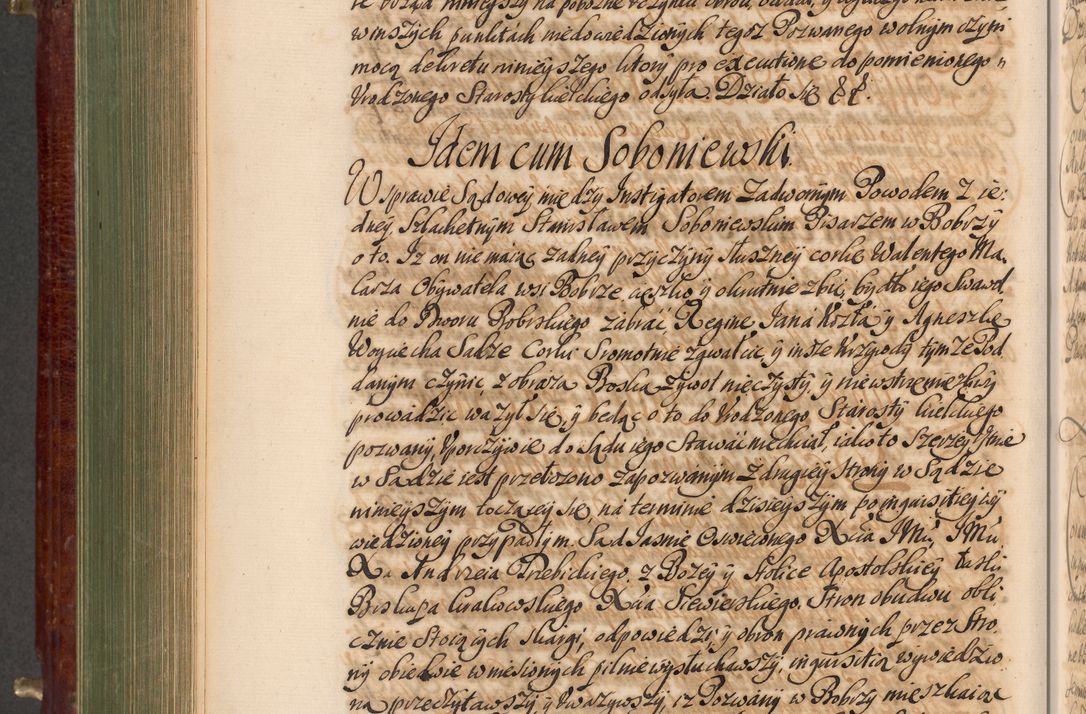 winszych punktach niedowiedzionych tegoż Pozwanego wolnym czyni
mocą dekretu nınieyszego ktory pro executione do pomienionego
Urodzonego Starosty kielckiego odsyła. Działo się &c &c.
Idem cum Soboniewski.
W sprawie Sądowey między Instigatorem Zadwornym Powodem z ie:
dney, Szlachetnym Stanisławem Soboniewskim Pisarzem w Bobrzy
o to. Iż on nie maiąc żadney przyczyny słuszney corkę Walentego Ma,
larza Obywatela wsi Bobrze cięszko y okrutnie zbić, bydło iego Swawol
nie do Dworu Bobrskiego zabrać, Reginę Jana Kozła y Agnieszkę
Woyciecha Sadze Corki Sromotnie zgwałcić, y insze krzywdy tymże Pod
danym czynić, z obrazą Boską żywot nieczysty, y niewstrzemięźliwy
prowadzić ważył się, y będąc o to do Urodzonego Starosty kielckiego
pozwany, Uporczywie do Sądu iego Stawać niechciał, iako to szerzey
w Sądzie iest przełożono zapozwanym z drugiey strony w Sądzie
ninieyszym toczącey się, na terminie dzisieyszym po inquisitiey wy
wiedzioney przypadłym. Sąd Jaśnie Oswieconego Xcia JMci, JMci
Xa Andrzeia Trzebickiego, z Bożey y Stolice Apostolskiey łaski
Biskupa Krakowskiego Xcia Siewierskiego. Stron obudwu obli
cznie stoiących skargi, odpowiedzi, y obron prawnych przez Stro,
ny obiedwie wniesionych pilnie wysłuchawszy, inquisitią wywiedzio
ną przeczytawszy y Uważywszy, iż Pozwany w Bobrzy mieszkaiąc